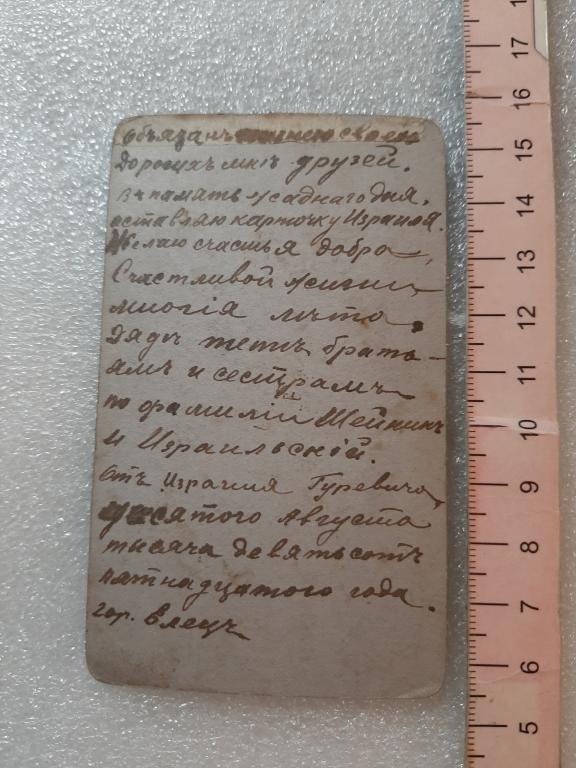 Обязанъ своей
дорогихъ мнѣ друзей.
Въ память жаднаго дня.
оставляю карточку Израиля.
Желаю счастья добра,
Счастливой жизни
многія лѣта.
Дядѣ тетѣ брать-
ямъ и сестрамъ
по фамиліи Шейнинъ
и Израильскій.
Отъ Израиля Гуревича,
десятого Августа
тысяча девятьсотъ
пятнадцатого года.
гор. Елецъ
17
16
15
14
13
12
11
10
9
8
7
6
5